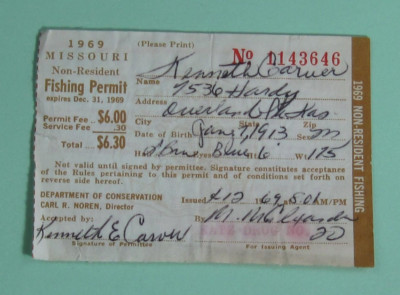 1969
MISSOURI
Non-Resident
Fishing Permit
expires Dec. 31, 1969
Permit Fee $6.00
Service Fee .30
Total $6.30
(Please Print) No 1143646
Kenneth Carver
Name
7536 Hardy
Address
Overland Pk Kas.
City State
Date of Birth Jan 7, 1913 Sex M
Eyes Blue 6 Wt 175
Not valid until signed by permittee. Signature constitutes acceptance
of the Rules pertaining to this permit and of conditions set forth on
reverse side hereof.
DEPARTMENT OF CONSERVATION
CARL R. NOREN, Director
Issued 4 12 69 AM/PM
Accepted by:
Kenneth E Carver
Signature of Permittee
By
For Issuing Agent
1969 NON-RESIDENT FISHING